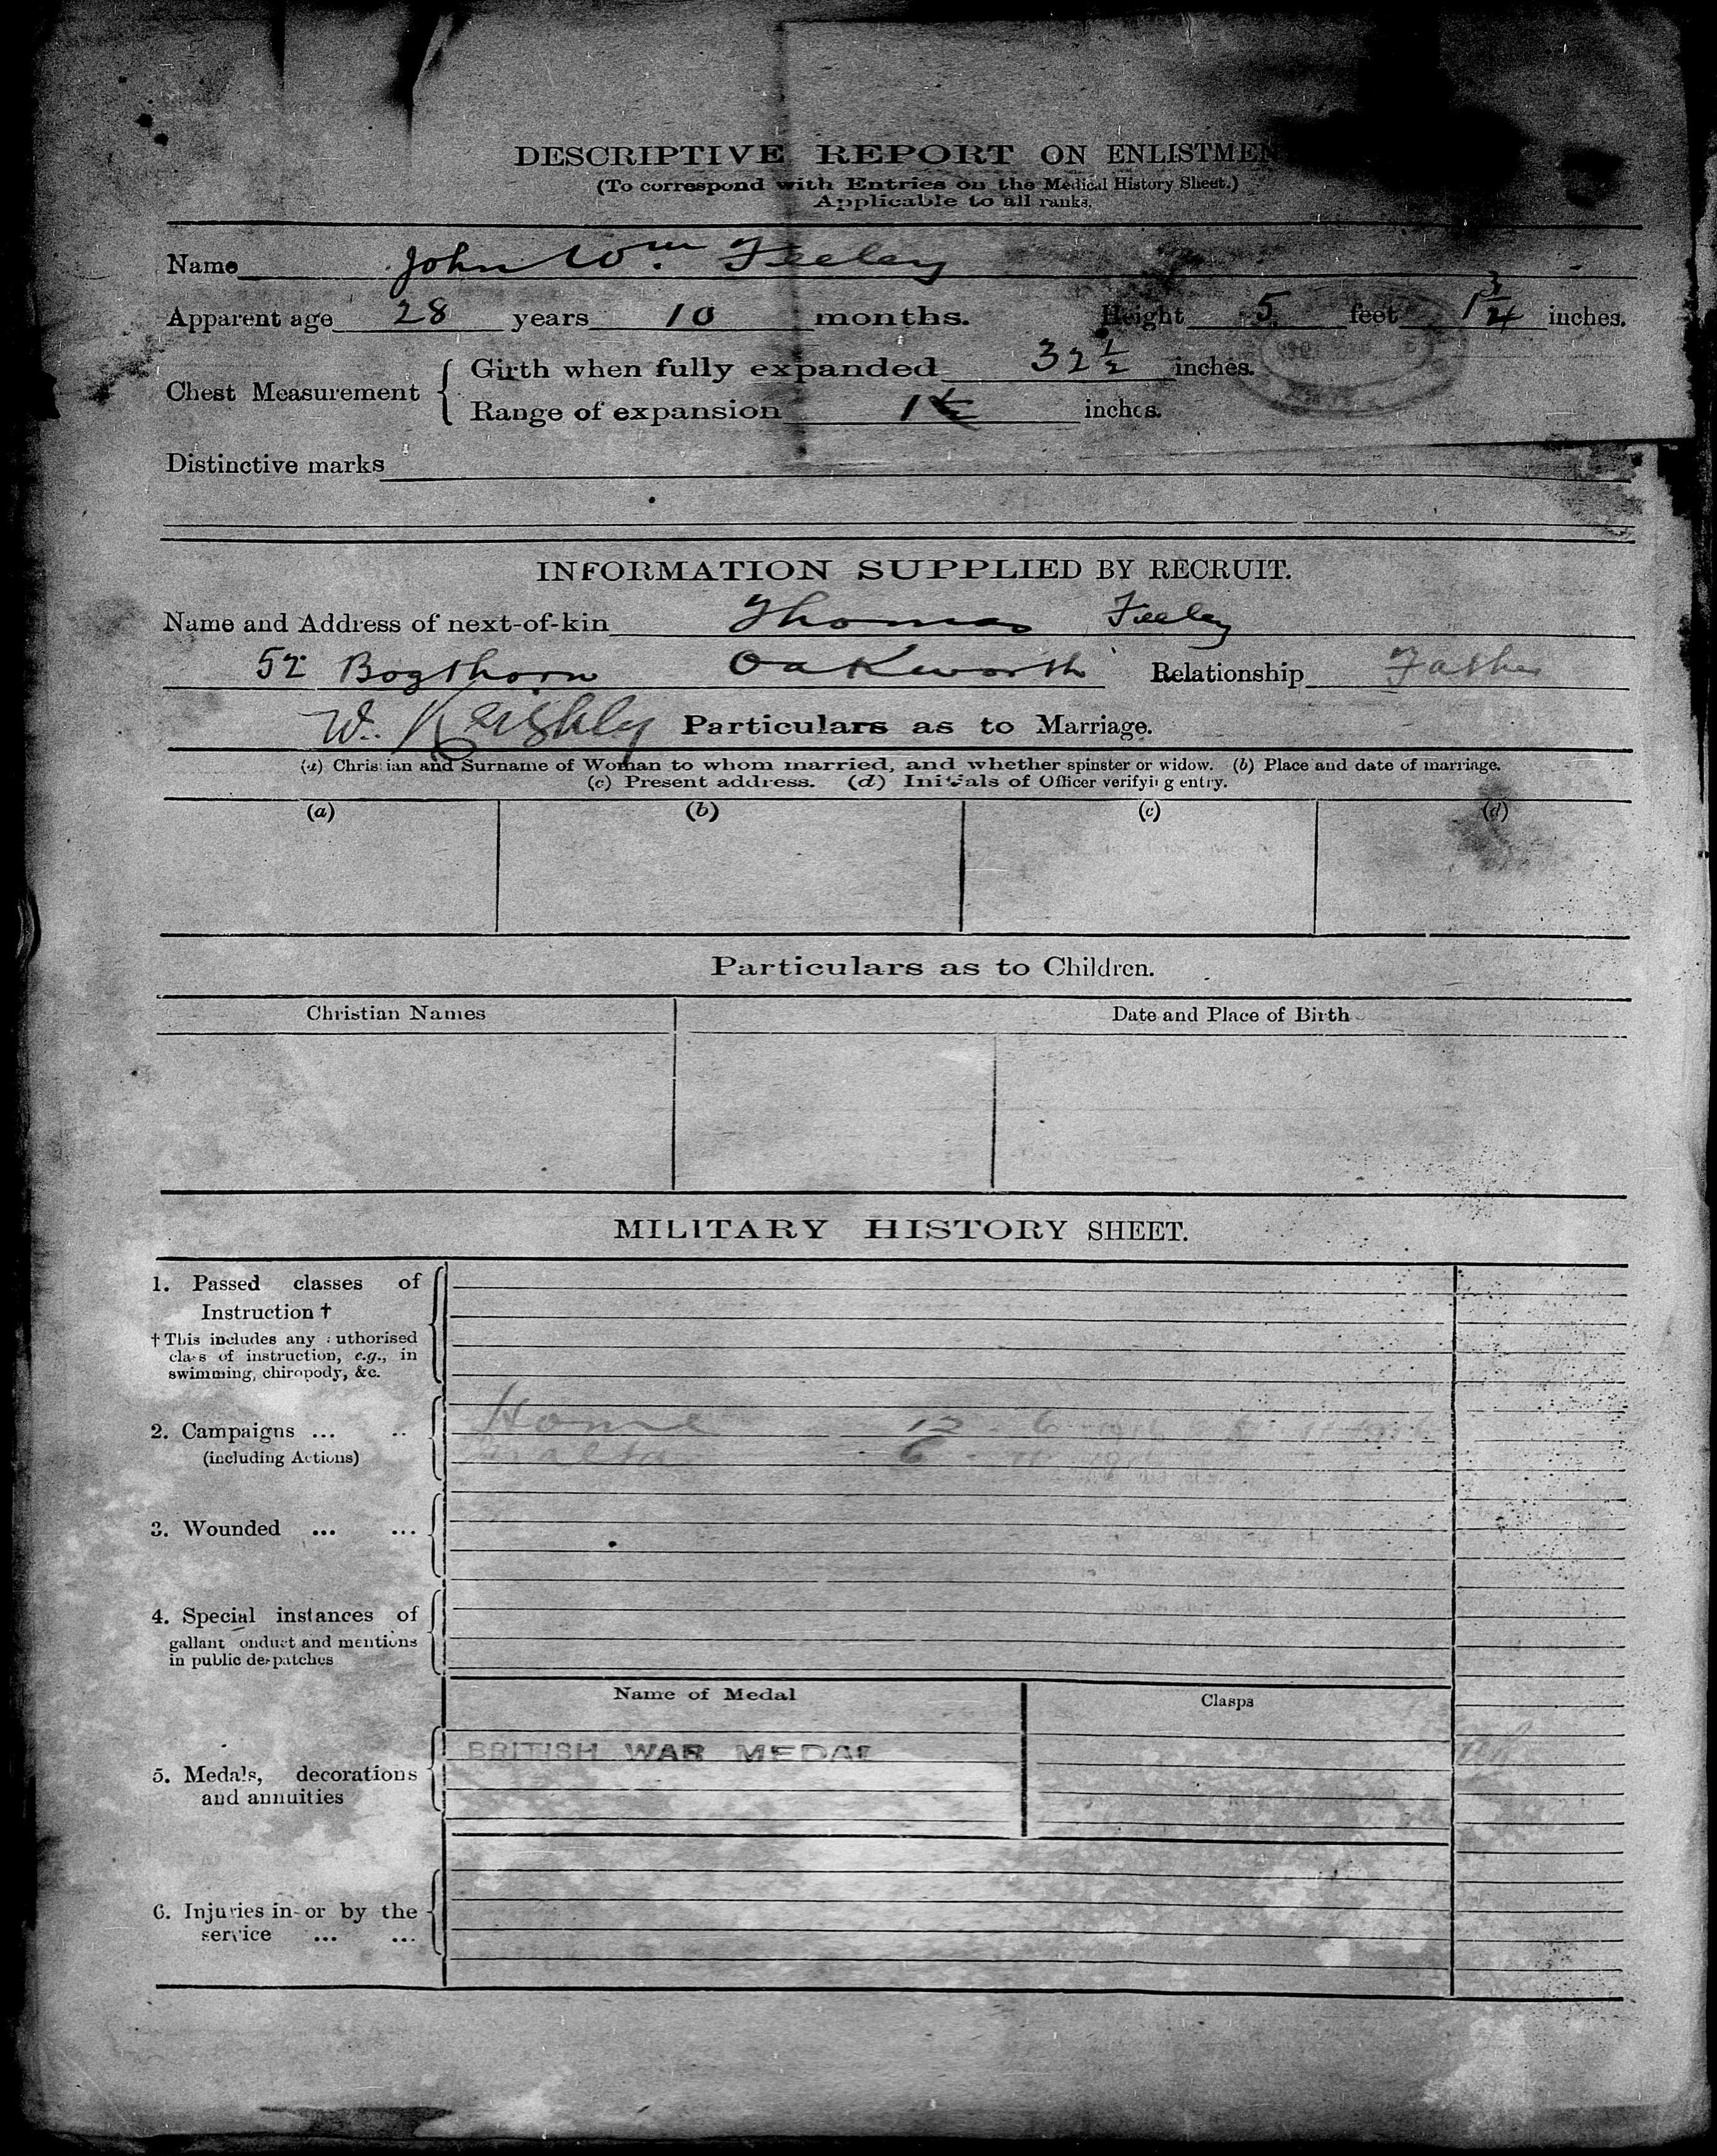 DESCRIPTIVE REPORT ON ENLISTMEN
(To correspond with Entries on the Medical History Sheet.)
Applicable to all ranks.
Name John Wm. Feeley
Apparent age 28 years 10 months. Height 5 feet 1 3/4 inches.
Chest Measurement { Girth when fully expanded 32 1/2 inches.
Range of expansion 1 1/2 inches.
Distinctive marks
INFORMATION SUPPLIED BY RECRUIT.
Name and Address of next-of-kin Thomas Feeley
52 Bogthorn Oakworth Relationship Father
W. Keighly Particulars as to Marriage.
(a) Christian and Surname of Woman to whom married, and whether spinster or widow. (b) Place and date of marriage.
(c) Present address. (d) Initials of Officer verifying entry.
(a) (b) (c) (d)
Particulars as to Children.
Christian Names Date and Place of Birth
MILITARY HISTORY SHEET.
1. Passed classes of
Instruction †
† This includes any authorised
class of instruction, e.g., in
swimming, chiropody, &c.
Home 12 6 1916
2. Campaigns ... ..
Malta 6
(including Actions)
3. Wounded ... ...
4. Special instances of
gallant conduct and mentions
in public despatches
Name of Medal Clasps
BRITISH WAR MEDAL
5. Medals, decorations
and annuities
6. Injuries in or by the
service ... ...